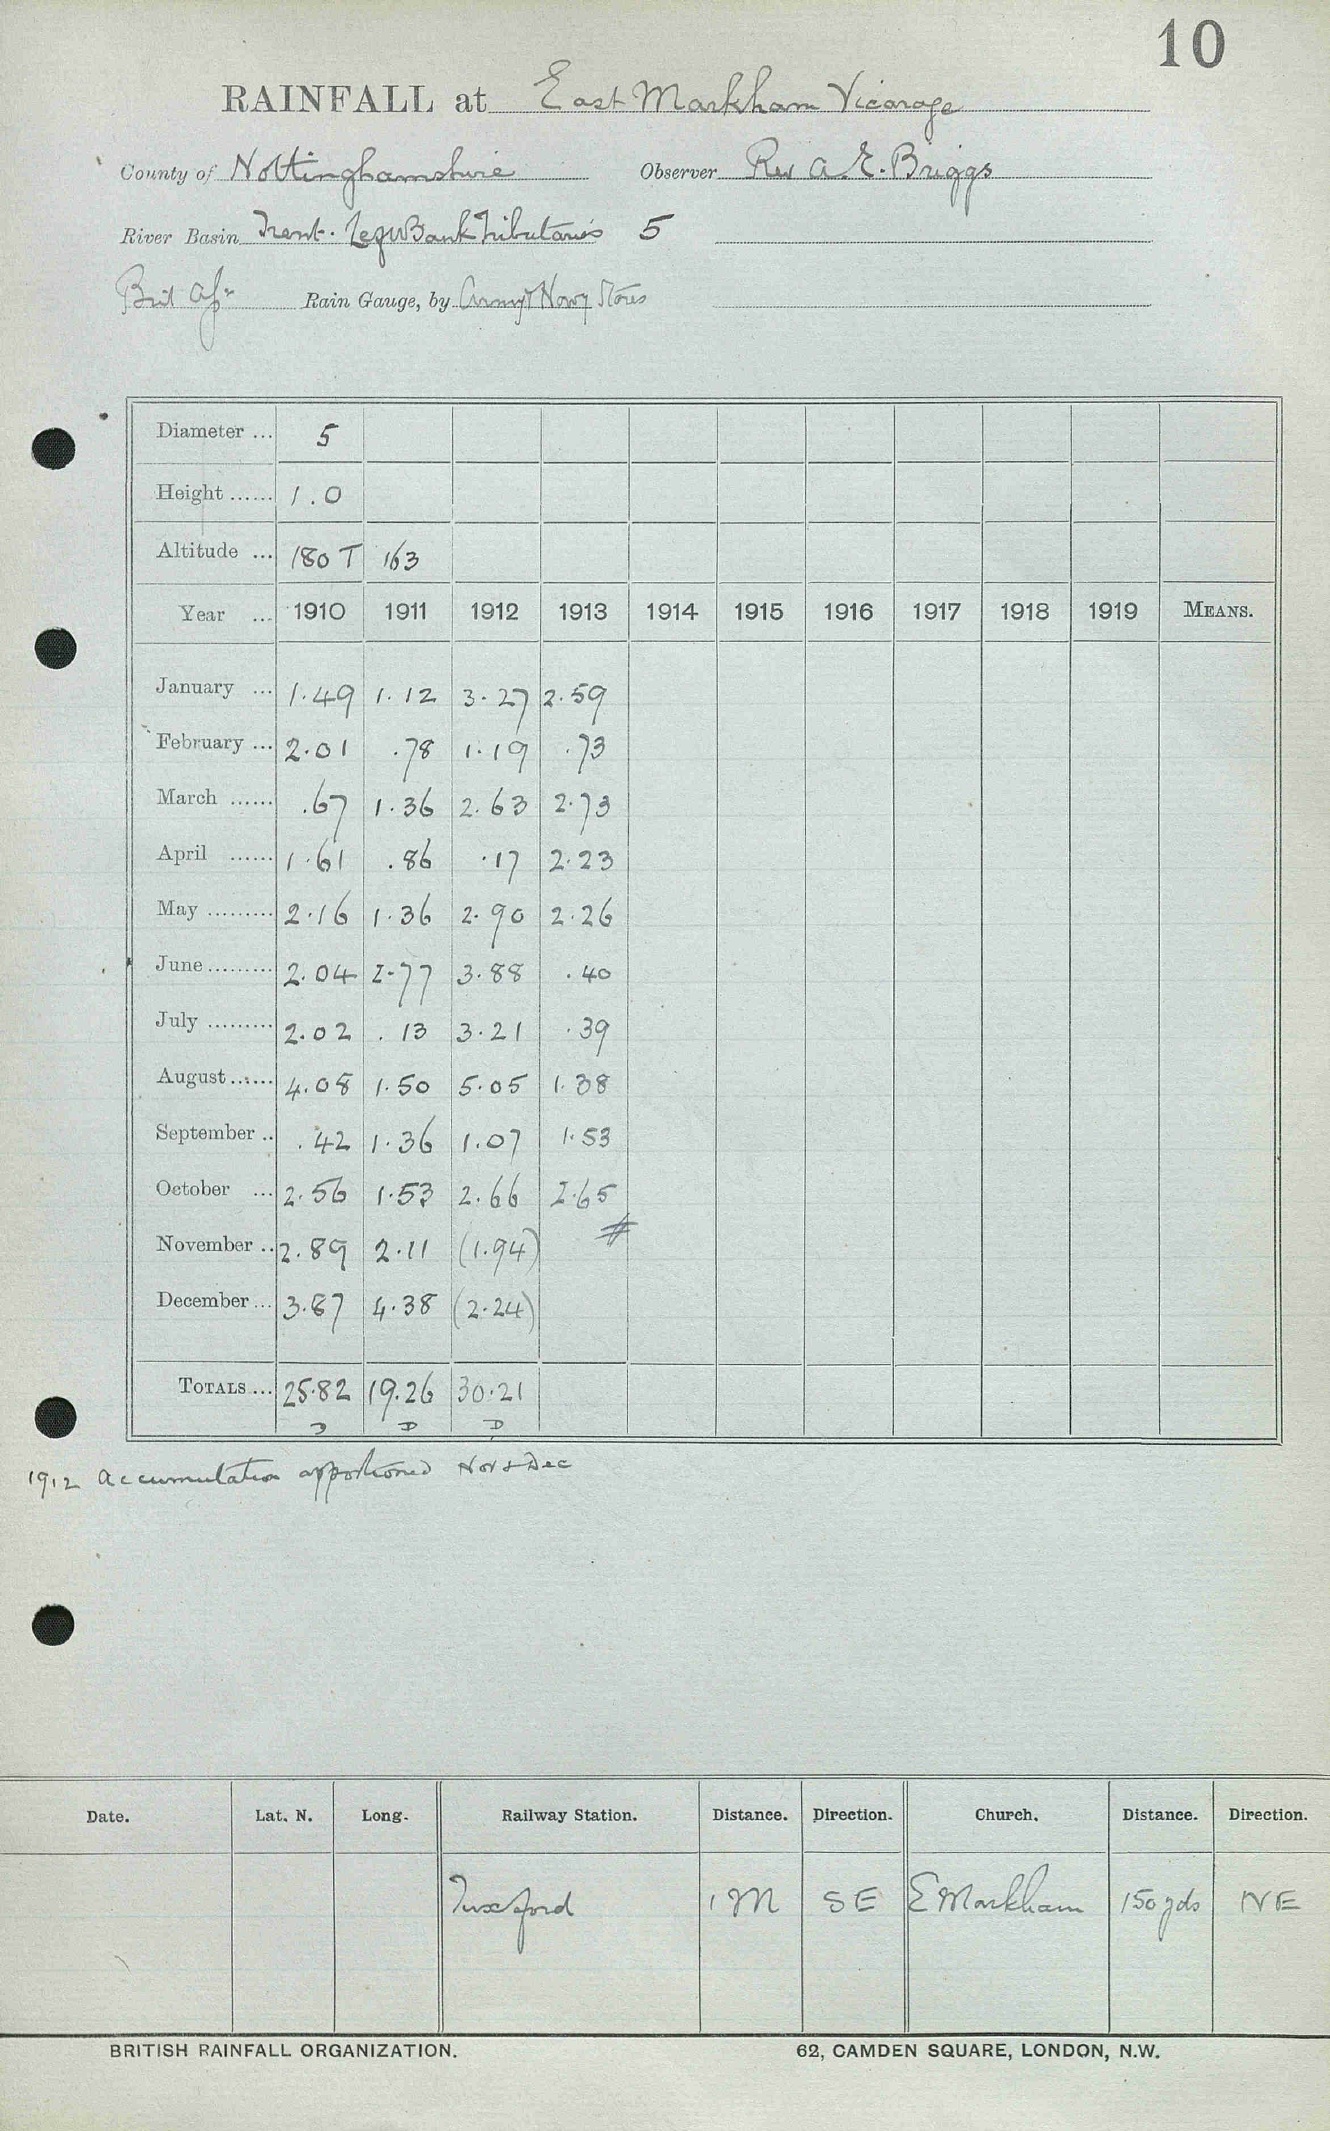 10
RAINFALL at East Markham Vicarage
County of Nottinghamshire Observer Rev A. E. Briggs
River Basin Trent. Left Bank Tributaries 5
Brit Assn Rain Gauge, by Army & Navy Stores
Diameter ... 5
Height ...... 1.0
Altitude ... 180 T 163
Year ... 1910 1911 1912 1913 1914 1915 1916 1917 1918 1919 MEANS.
January ... 1.49 1.12 3.27 2.59
February ... 2.01 .78 1.19 .73
March ...... .67 1.36 2.63 2.73
April ...... 1.61 .86 .17 2.23
May ......... 2.16 1.36 2.90 2.26
June ......... 2.04 2.77 3.88 .40
July ......... 2.02 .13 3.21 .39
August ...... 4.08 1.50 5.05 1.38
September .. .42 1.36 1.07 1.53
October ... 2.56 1.53 2.66 2.65
November .. 2.89 2.11 (1.94) #
December ... 3.87 4.38 (2.24)
TOTALS ... 25.82 19.26 30.21
D D D
1912 Accumulation apportioned Nov & Dec
Date. Lat. N. Long. Railway Station. Distance. Direction. Church. Distance. Direction.
Tuxford 1 M SE E Markham 150 yds NE
BRITISH RAINFALL ORGANIZATION. 62, CAMDEN SQUARE, LONDON, N.W.